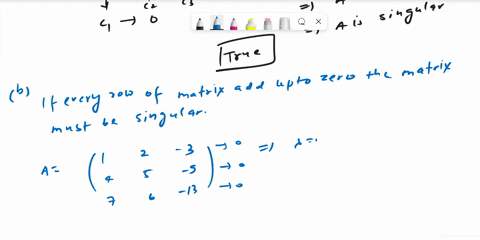 C₁ → 0
⇒ A is singular
True
(b) If every row of matrix add upto zero the matrix
must be singular.
1 2 -3 → 0 ⇒ λ=
A= 4 5 -9 → 0
7 6 -13 → 0